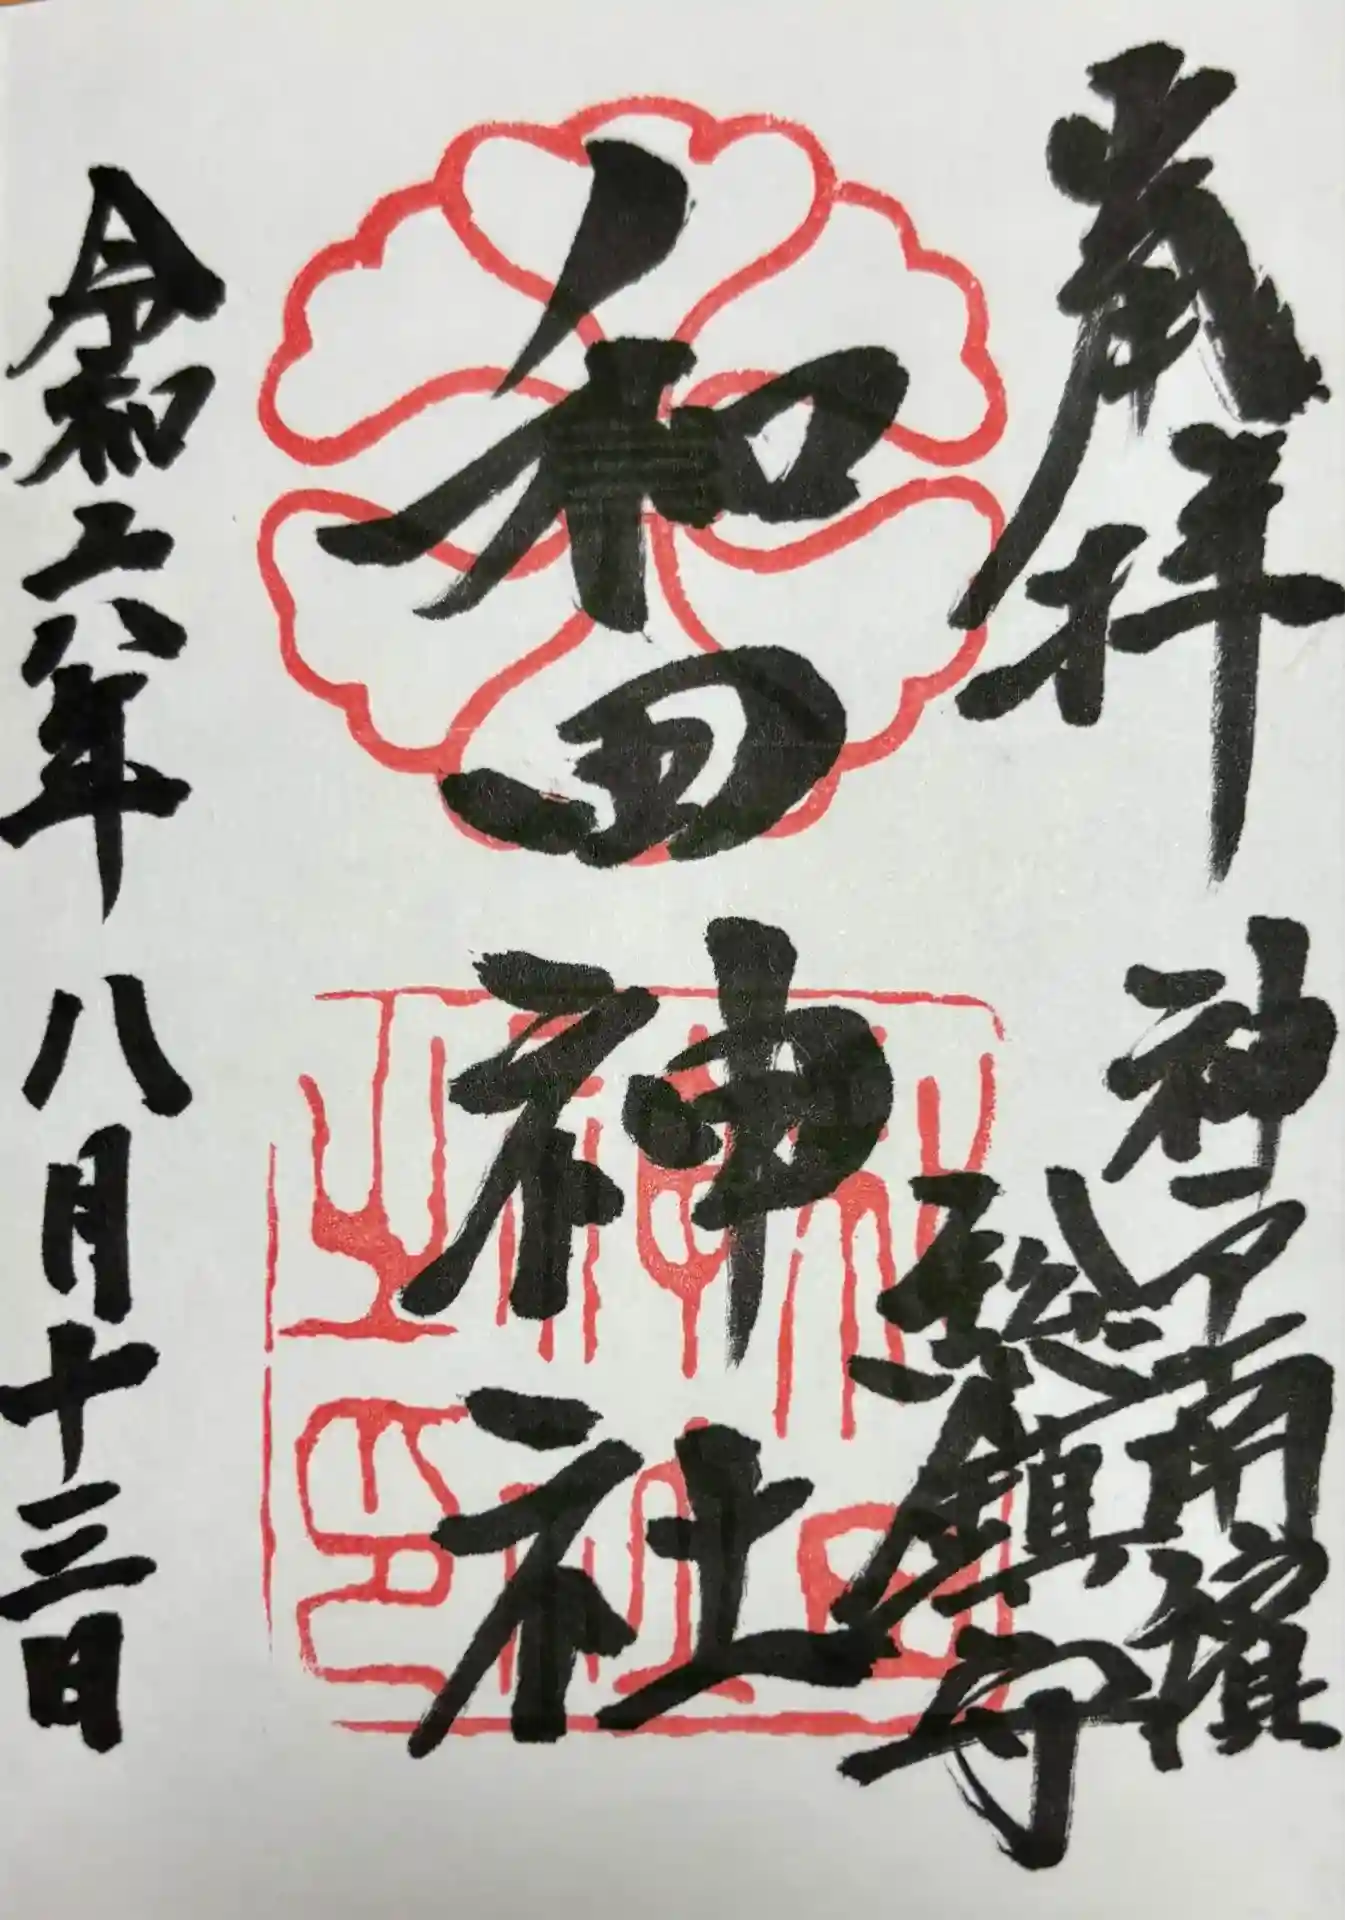 拝
神戸南濱
総鎮守
和田神社
令和六年八月十三日
和田
神社
之印